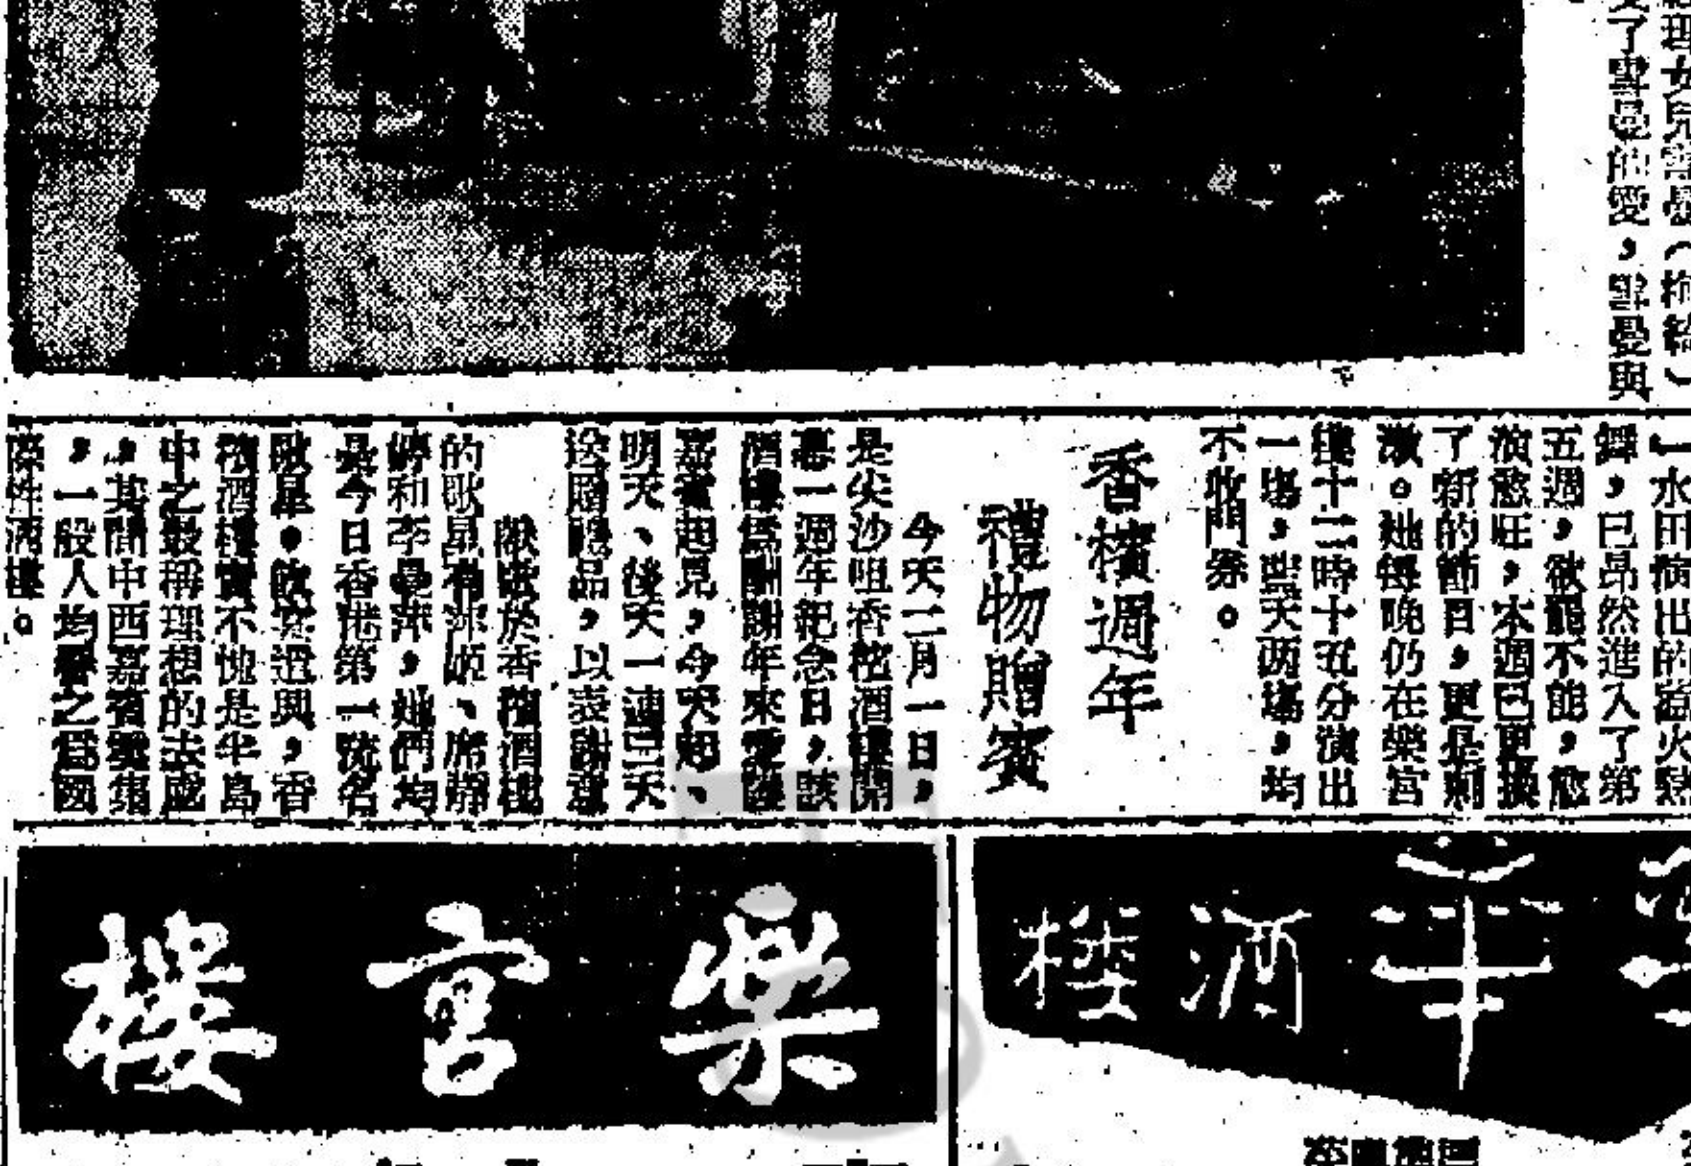 理女兒雪曼（柯綸）
了雪曼的愛，雪曼與
一水田演出的盆火熱
舞，已昂然進入了第
五週，欲罷不能，愈
演愈旺，本週已更換
了新的節目，更是刺
激。她每晚仍在樂宮
樓十二時十五分演出
一塲，監天两塲，均
不收門券。
香檳週年
禮物贈賓
今天二月一日，
是尖沙咀香檳酒樓開
幕一週年紀念日，該
酒樓爲酬謝年來愛護
嘉賓起見，今天起、
明天、後天一連三天
送贈禮品，以表謝意
獻歌於香檳酒樓
的歌星有 、席靜
婷和李曼萍，她們均
是今日香港第一流名
歌星。飲茶遣興，香
檳酒樓實不愧是半島
中之最稱理想的去處
，其間中西嘉賓雲集
，一般人均譽之爲國
際性酒樓。
樂宮樓
華酒樓